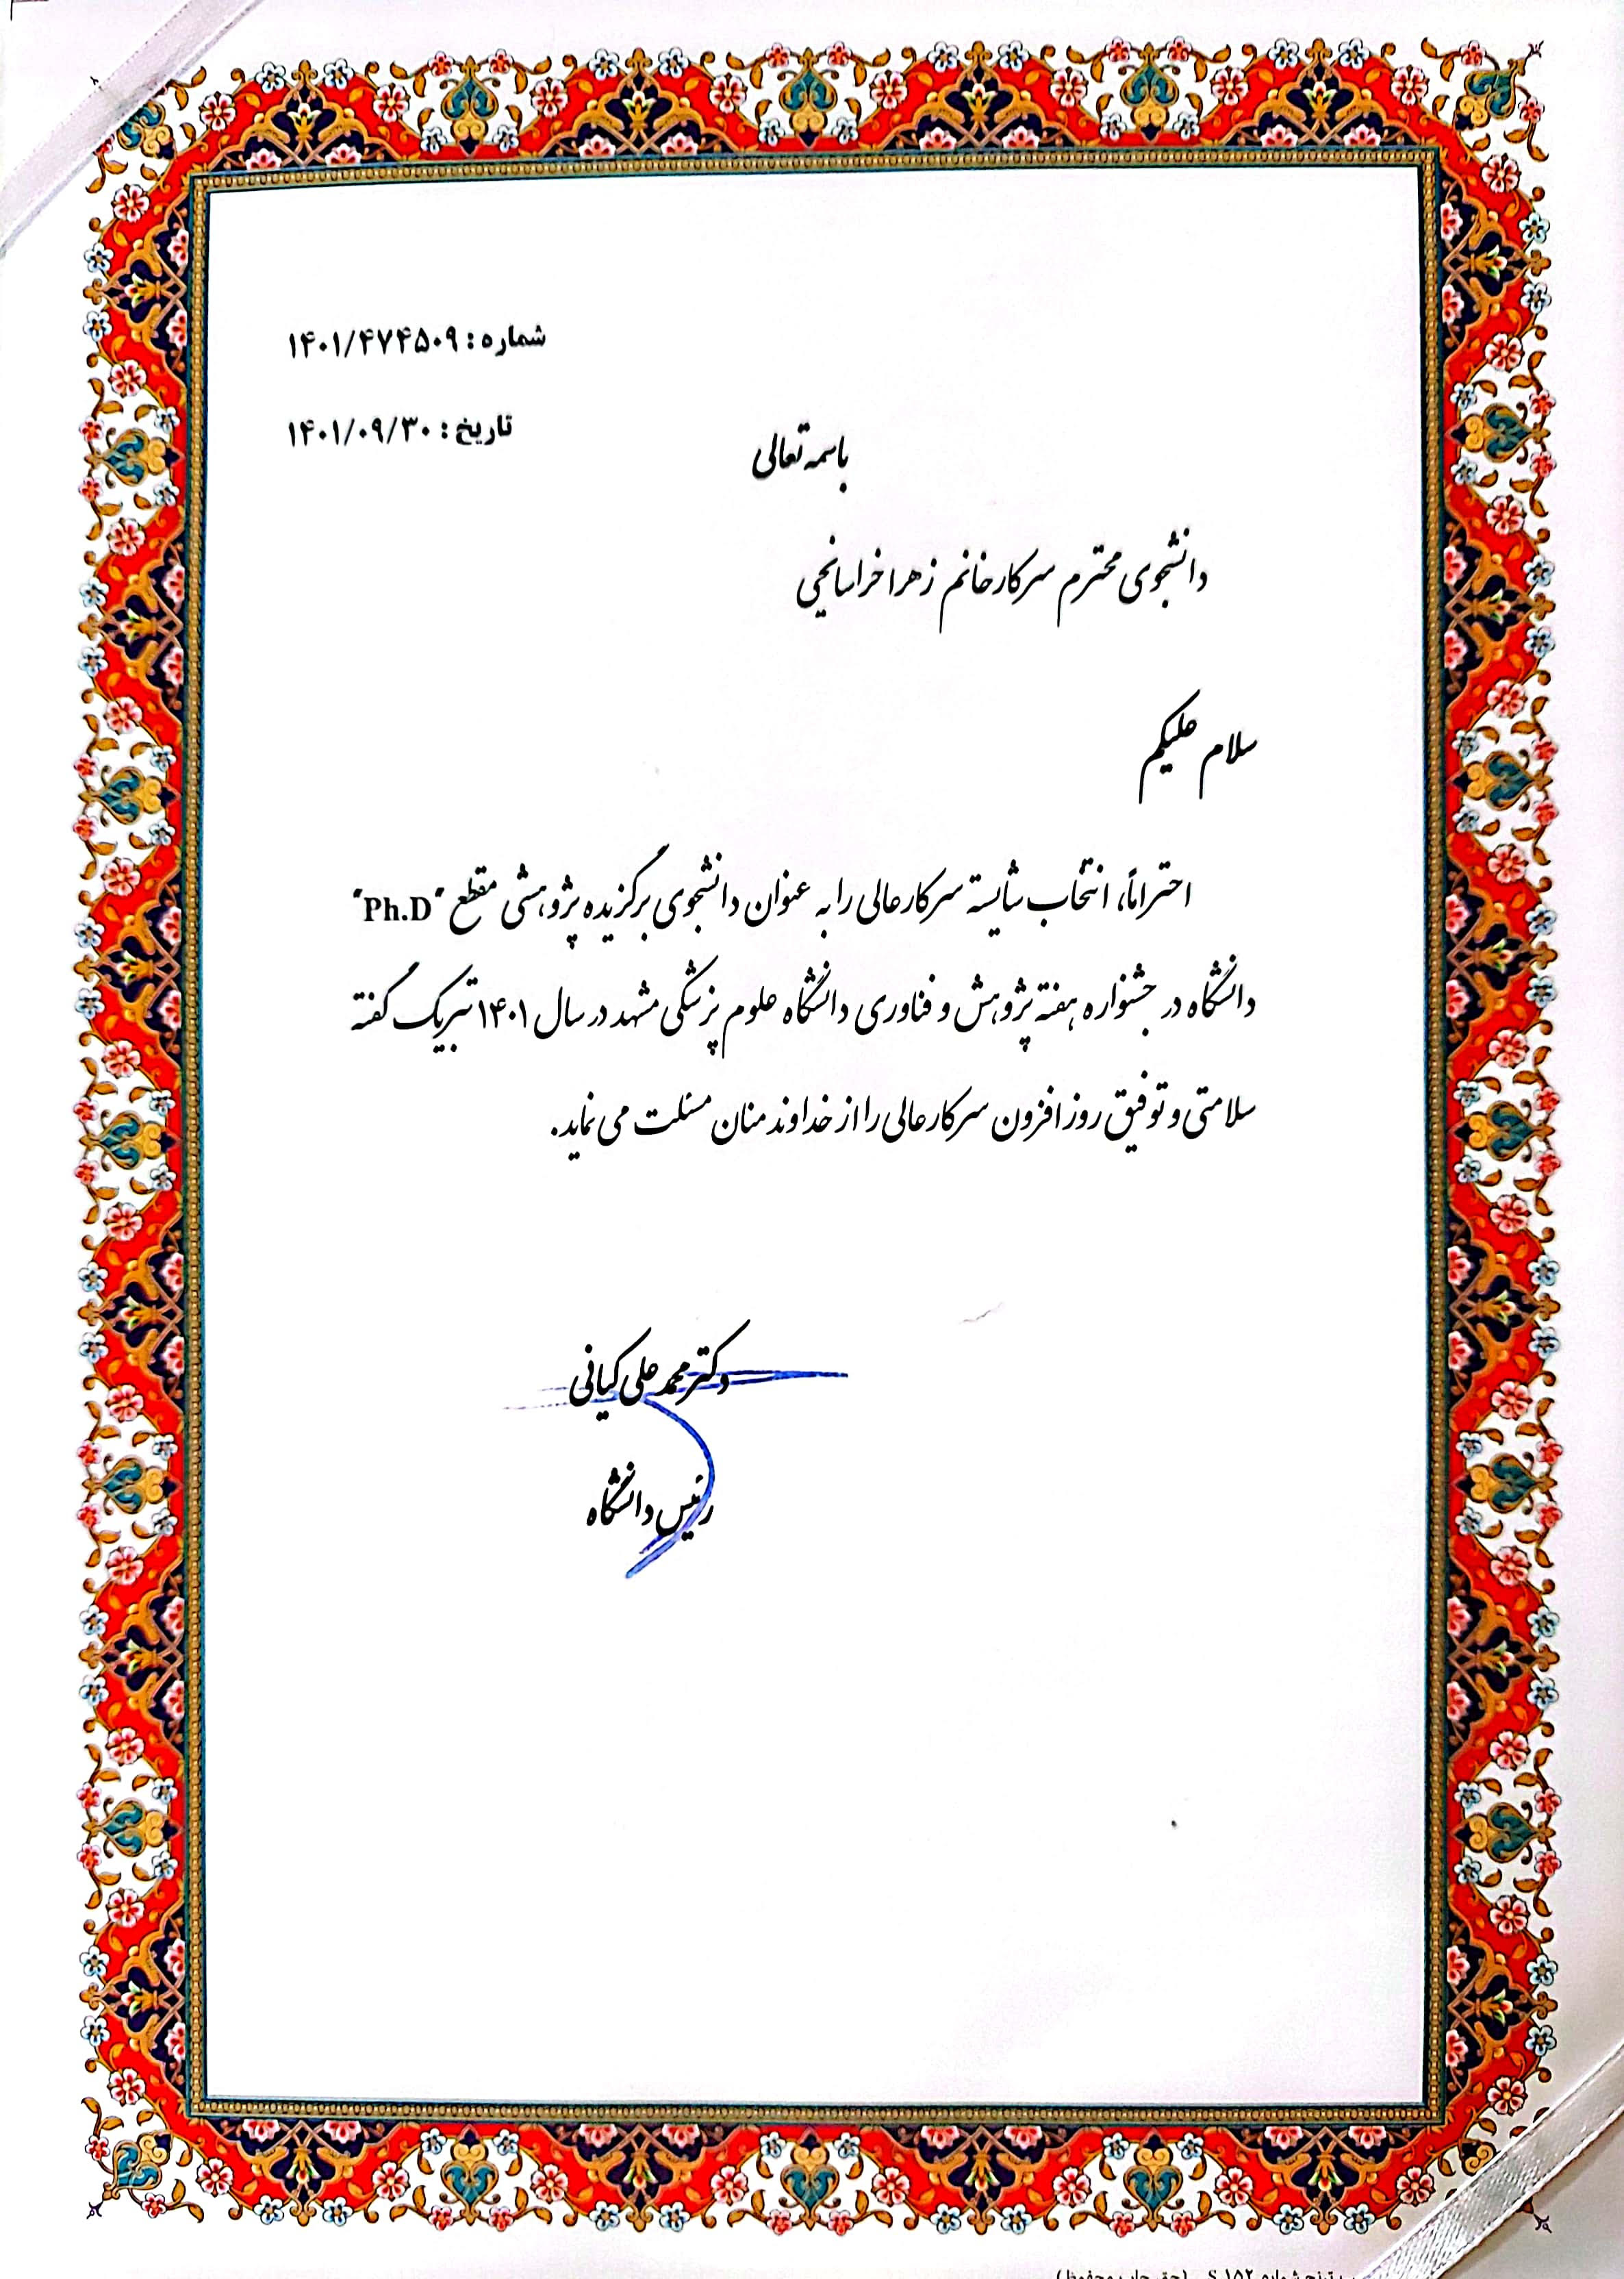 شماره : ۱۴۰۱/۴۷۴۵۰۹
تاریخ : ۱۴۰۱/۰۹/۳۰
باسمه تعالی
دانشجوی محترم سرکار خانم زهرا خراسانچی
سلام علیکم
احتراماً، انتخاب شایسته سرکارعالی را به عنوان دانشجوی برگزیده پژوهشی مقطع "Ph.D"
دانشگاه در جشنواره هفته پژوهش و فناوری دانشگاه علوم پزشکی مشهد در سال ۱۴۰۱ تبریک گفته
سلامتی و توفیق روز افزون سرکارعالی را از خداوند منان مسئلت می نماید.
دکتر محمد علی کیانی
رئیس دانشگاه